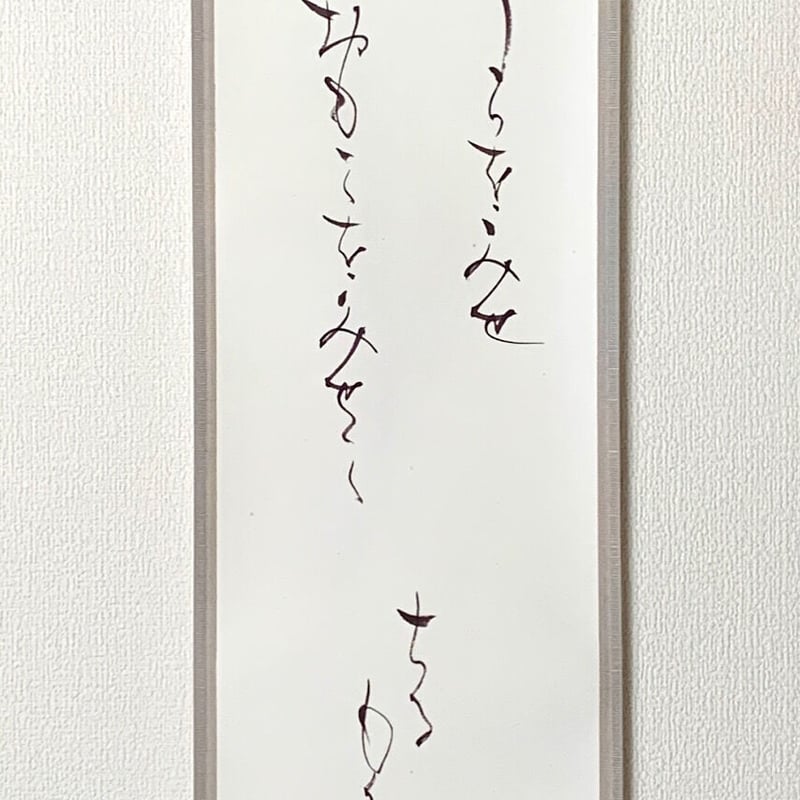 らをみせ
おもてをみせて
ちる
も